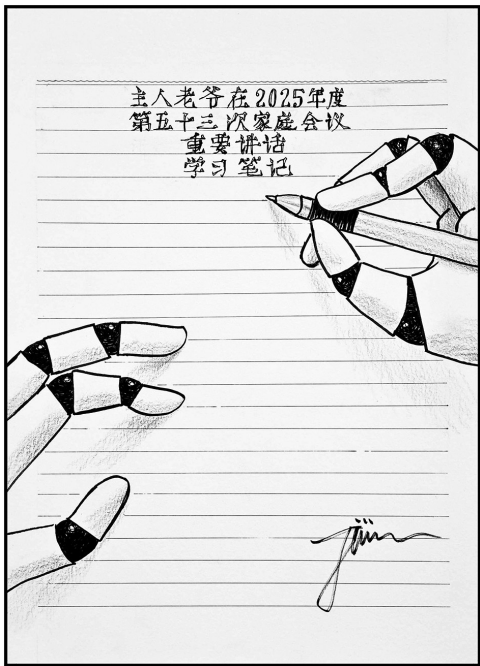 主人老爷在2025年度
第五十三次家庭会议
重要讲话
学习笔记